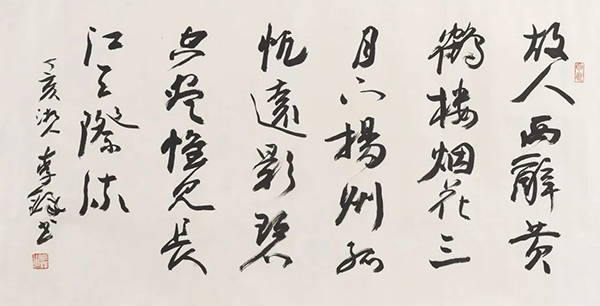 故人西辭黄
鹤楼烟花三
月下揚州孤
帆遠影碧
空尽惟见长
江天際流
丁亥 李 书